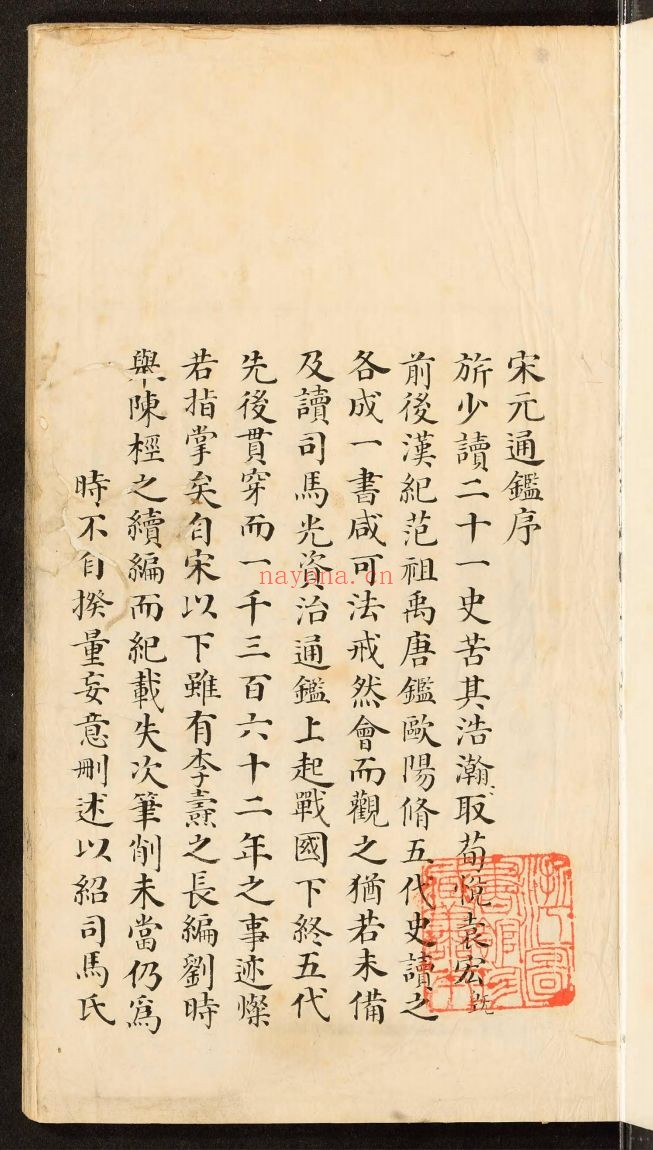 宋元通鑑序
旂少讀二十一史苦其浩瀚取荀悅袁宏
前後漢紀范祖禹唐鑑歐陽脩五代史讀之
各成一書咸可法戒然會而觀之猶若未備
及讀司馬光資治通鑑上起戰國下終五代
先後貫穿而一千三百六十二年之事迹燦
若指掌矣自宋以下雖有李燾之長編劉時
舉陳桱之續編而紀載失次筆削未當仍爲
時不自揆量妄意刪述以紹司馬氏
nayona.cn